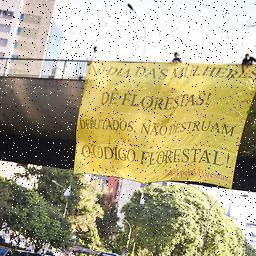 DIA DAS MULHERES
DE FLORESTAS!
DEPUTADOS, NÃO DESTRUAM
O CÓDIGO FLORESTAL!